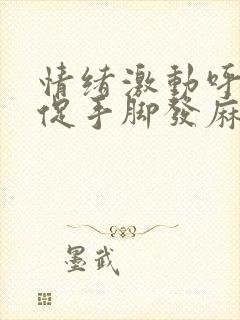 情绪激動呼
促手脚發麻
墨武